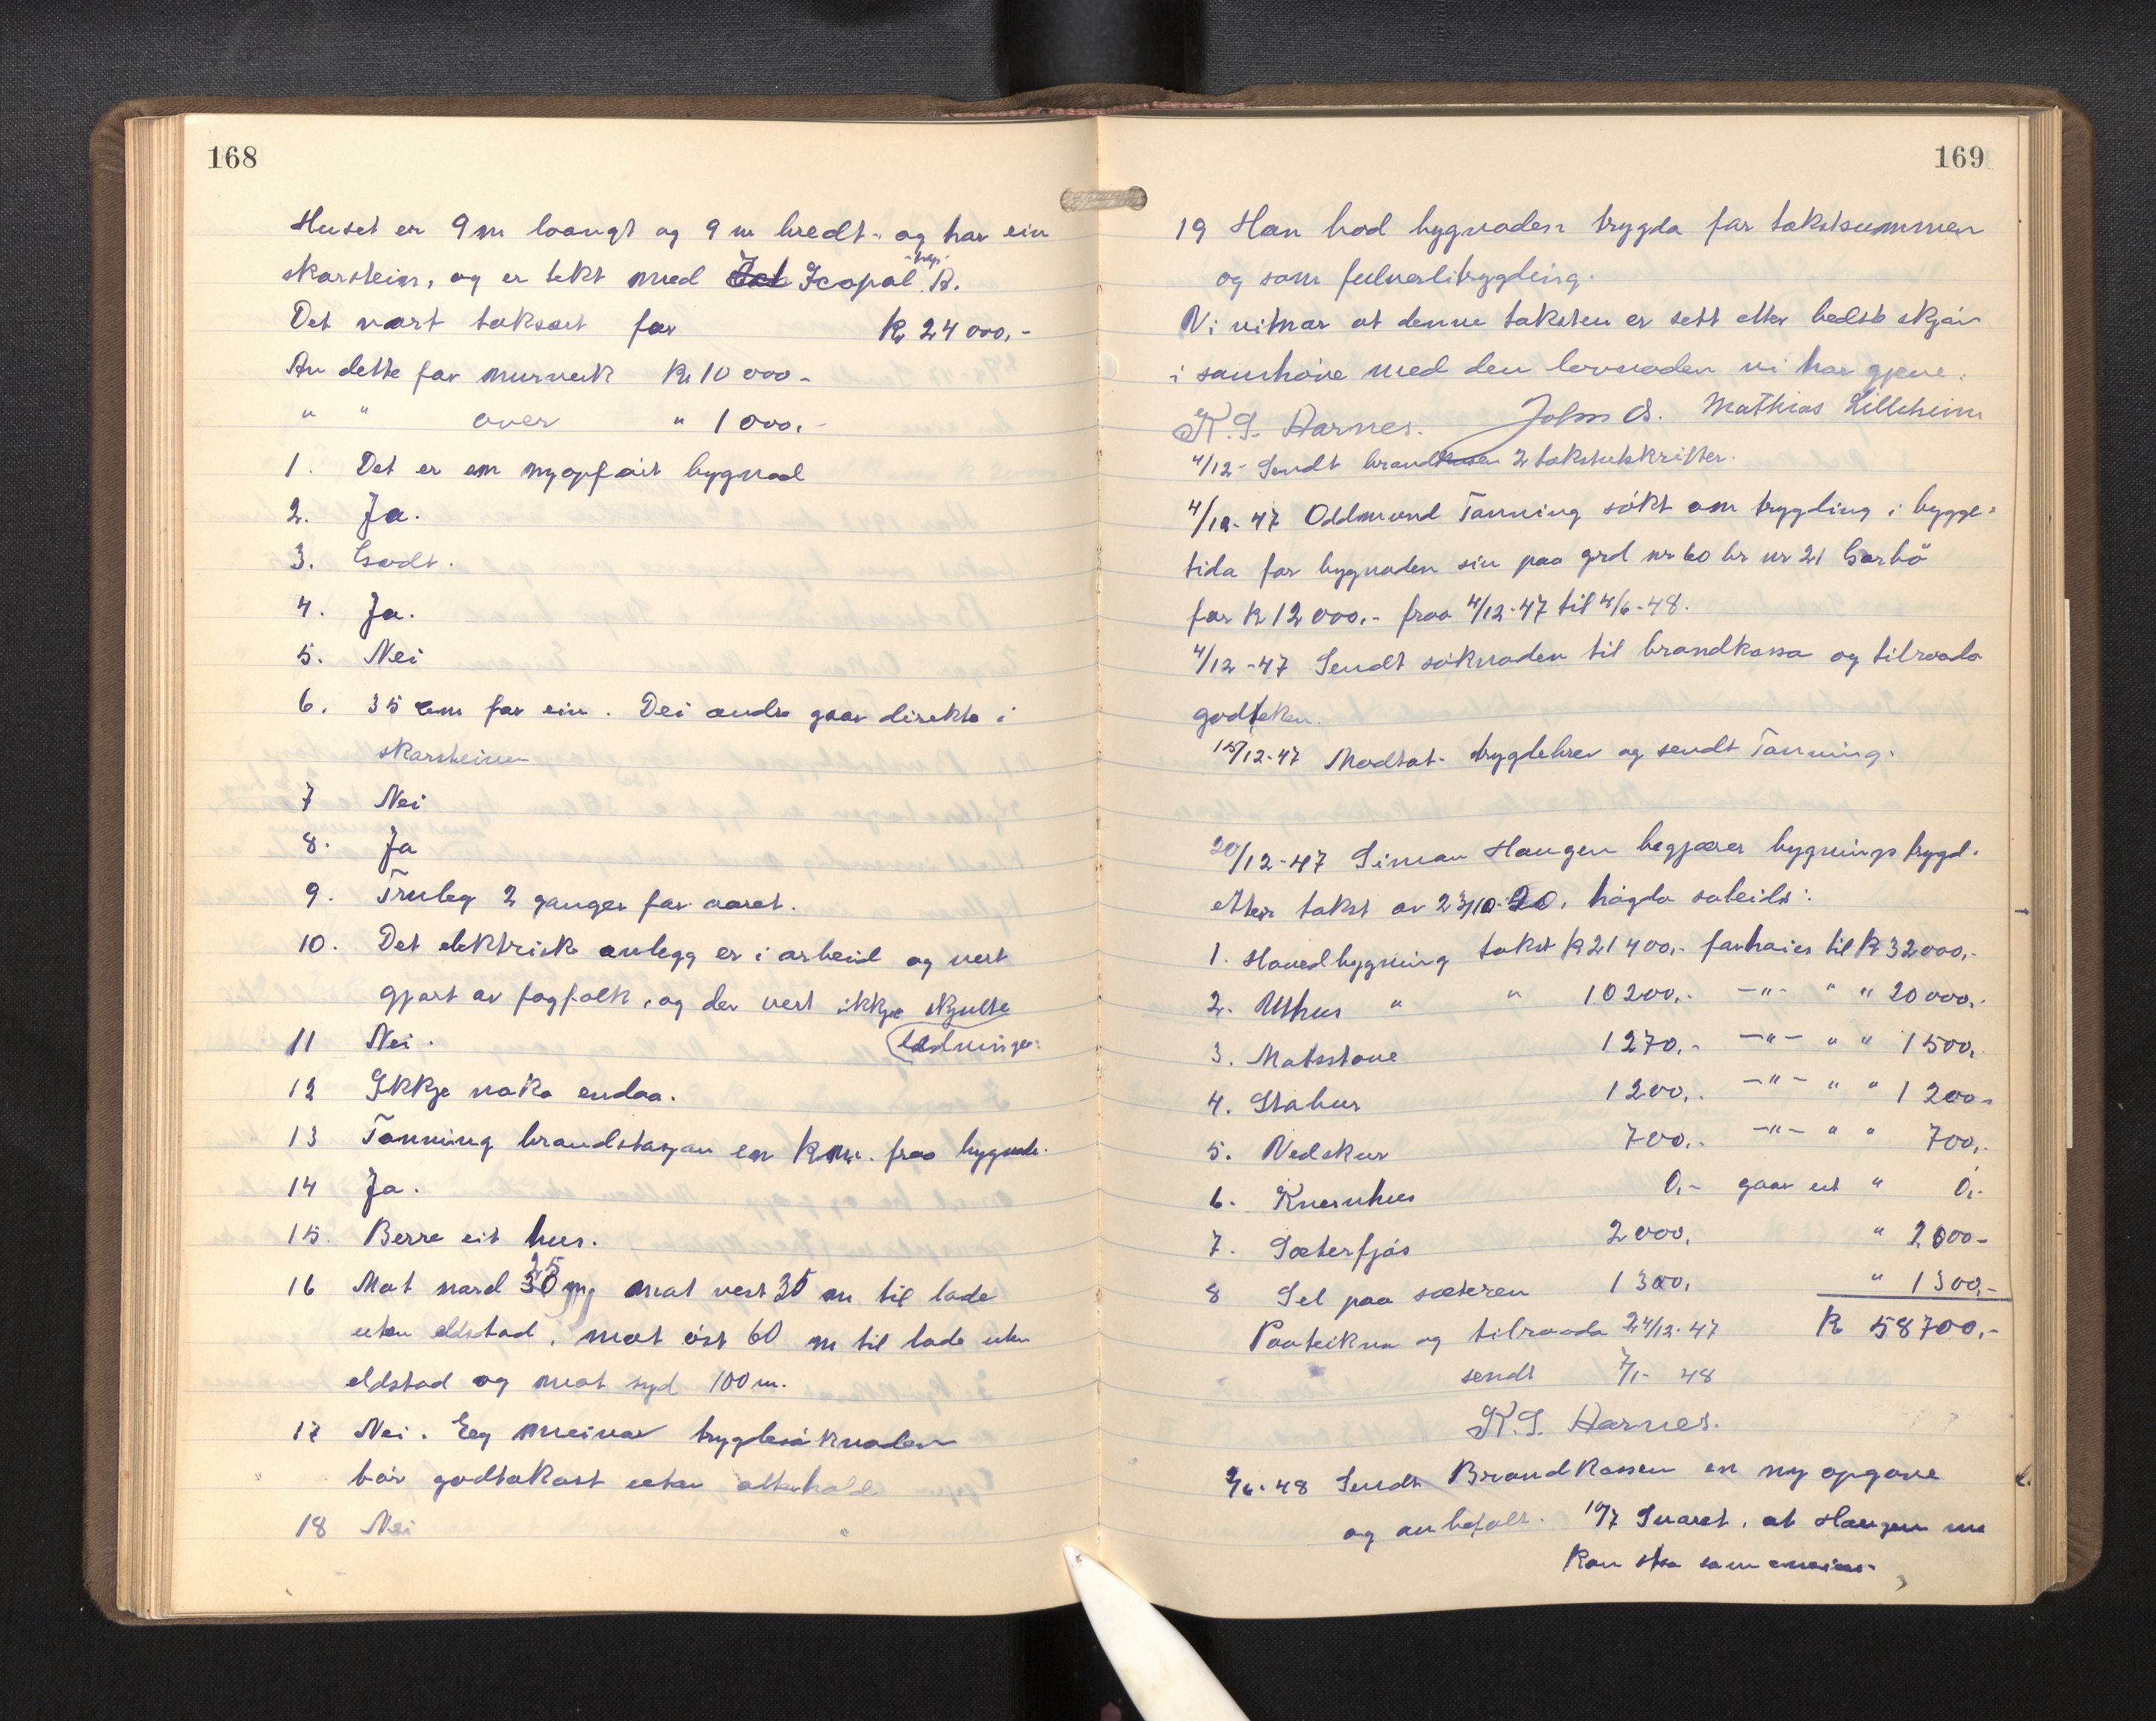 168
Huset er 9 m laangt og 9 m bredt. og har ein
skorstein, og er tekt med Icopal R.
Det vart taksert for kr 24 000,-
Av dette for murverk Kr 10 000-
" " over " 1 000,-
1. Det er em nyopført bygnad
2. Ja.
3. Godt.
4. Ja.
5. Nei
6. 35 cm for ein. Dei andre gaar direkte i
skorsteinen
7 Nei
8. Ja
9. Truleg 2 ganger for aaret.
10. Det elektrisk anlegg er i arbeid og vert
gjort av fagfolk, og der vert ikkje skjulte
ledninger.
11 Nei.
12 Ikkje noko endaa.
13 Tanning brandstasjon en km. fraa bygnad.
14 Ja.
15. Berre eit hus.
16 Mot nord 25 m, mot vest 35 m til lade
uten eldstad, mot øst 60 m til lade uten
eldstad og mot syd 100 m.
17 Nei. Eg meinar trygdesøknaden
bør godtakast uten atterhald
18 Nei
169
19 Han bad bygnaden trygda for takstsummen
og som fullverditrygding.
Vi vitnar at denne taksten er sett etter beste skjøn
i samhøve med den lovnaden vi har gjeve.
K. S. Aarnes. John O. Mathias Lillheim
4/12- Sendt brandkasen 2 takstutskrifter.
4/12-47 Oddmund Tanning søkt om trygding i bygge=
tida for bygnaden sin paa grd nr 60 br nr 21 Garbö
for kr 12 000,- fraa 4/12-47 til 4/6-48.
4/12-47 Sendt søknaden til brandkassa og tilraada
godteken.
15/12-47 Modtat trygdebrev og sendt Tanning.
20/12-47 Simon Haugen begjærer bygnings trygd.
etter takst av 23/10-20, høgda saleids:
1. Hovedbygning takst kr 21 400,- forhøies til kr 32 000,-
2. Uthus " " 10 200,- -"- " " 20 000,-
3. Matstove 1 270,- -"- " " 1 500,-
4. Stabur 1 200,- -"- " " 1 200-
5. Vedskur 700,- -"- " " 700,-
6. Kvernhus 0,- gaar ut " 0,-
7. Sæterfjøs 2 000, " 2 000-
8 Sel paa sæteren 1 300, " 1 300,-
Paateikna og tilraada 24/12-47 kr 58 700,-
sendt 7/1- 48
K. S. Aarnes.
2/6-48 Sendt Brandkassen en ny opgave
og anbefalt. 10/7 Svaret, at Haugen
kan staa som